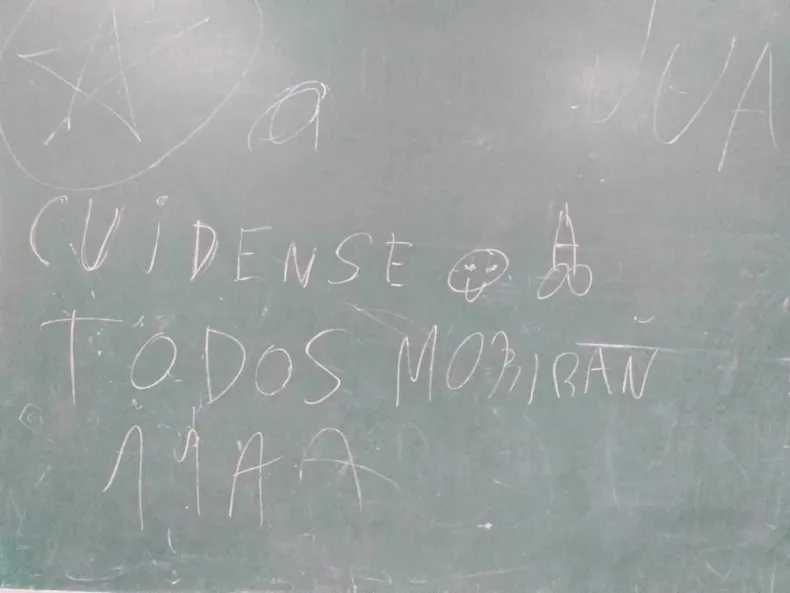 a UA
CUIDENSE
TODOS MORIRAN
11AA